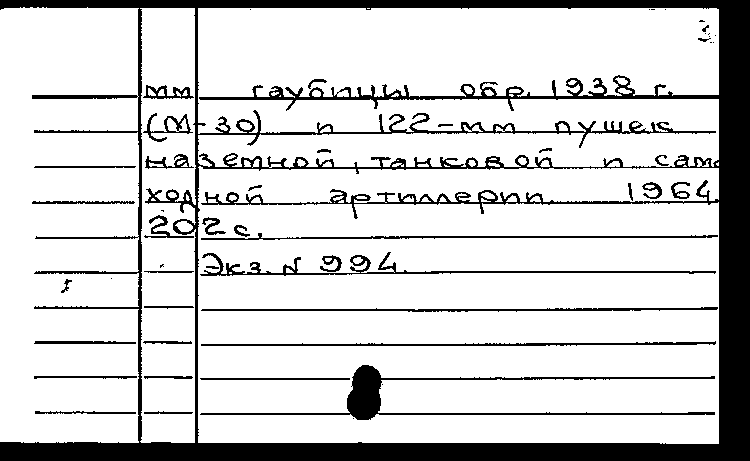 3
мм гаубицы обр. 1938 г.
(М-30) и 122-мм пушек
наземной, танковой и само
ходной артиллерии. 1964.
202 с.
Экз. N 994.